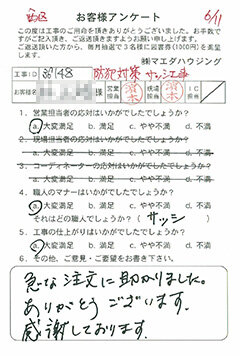 西区 お客様アンケート 6/11
この度は工事のご用命を頂きありがとうございました。お手数
ですがご記入頂き、ご返送頂きますようお願い申し上げます。
ご返送頂いた方から、毎月抽選で3名様に図書券(1000円)を進呈
します。
㈱マエダハウジング
工事ID 38148 防犯対策 サッシ工事
お客様名 様 営業担当 済本 工事担当 済本
1. 営業担当者の応対はいかがでしたでしょうか?
a. 大変満足 b. 満足 c. やや不満 d. 不満
2. 現場担当者の応対はいかがでしたでしょうか?
a. 大変満足 b. 満足 c. やや不満 d. 不満
3. コーディネーターの応対はいかがでしたでしょうか?
a. 大変満足 b. 満足 c. やや不満 d. 不満
4. 職人のマナーはいかがでしたでしょうか?
a. 大変満足 b. 満足 c. やや不満 d. 不満
それはどの職人でしょうか? ( サッシ )
5. 工事の仕上がりはいかがでしたでしょうか?
a. 大変満足 b. 満足 c. やや不満 d. 不満
6. その他、ご意見・ご要望をお書き下さい。
急な注文に助かりました。
ありがとうございます。
感謝しております。